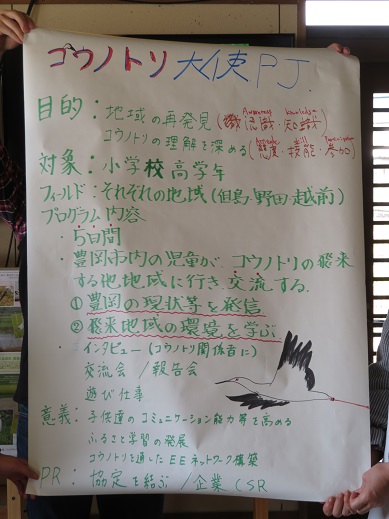 コウノトリ 大使 PJ.
目的：地域の再発見（認識・知識）
Awareness Knowledge
コウノトリの理解を深める（態度・技能・参加）
Participation
対象：小学校 高学年
フィールド：それぞれの地域（但島・野田・越前）
プログラム内容
・5日間
・豊岡市内の児童が、コウノトリの飛来
する他地域に行き、交流する.
①豊岡の現状等を発信
②飛来地域の環境を学ぶ
・インタビュー（コウノトリ関係者に）
交流会／報告会
遊び仕事
意義：子供達のコミュニケーション能力等を高める
ふるさと学習の発展
コウノトリを通したEEネットワーク構築
PR：協定を結ぶ／企業CSR